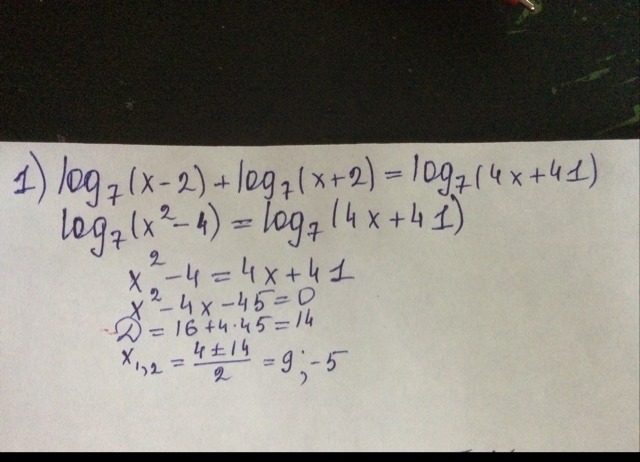 1) log₇(x-2)+log₇(x+2)=log₇(4x+41)
log₇(x²-4)=log₇(4x+41)
x²-4=4x+41
x²-4x-45=0
D=16+4·45=14
x₁,₂=(4±14)/2=9;-5